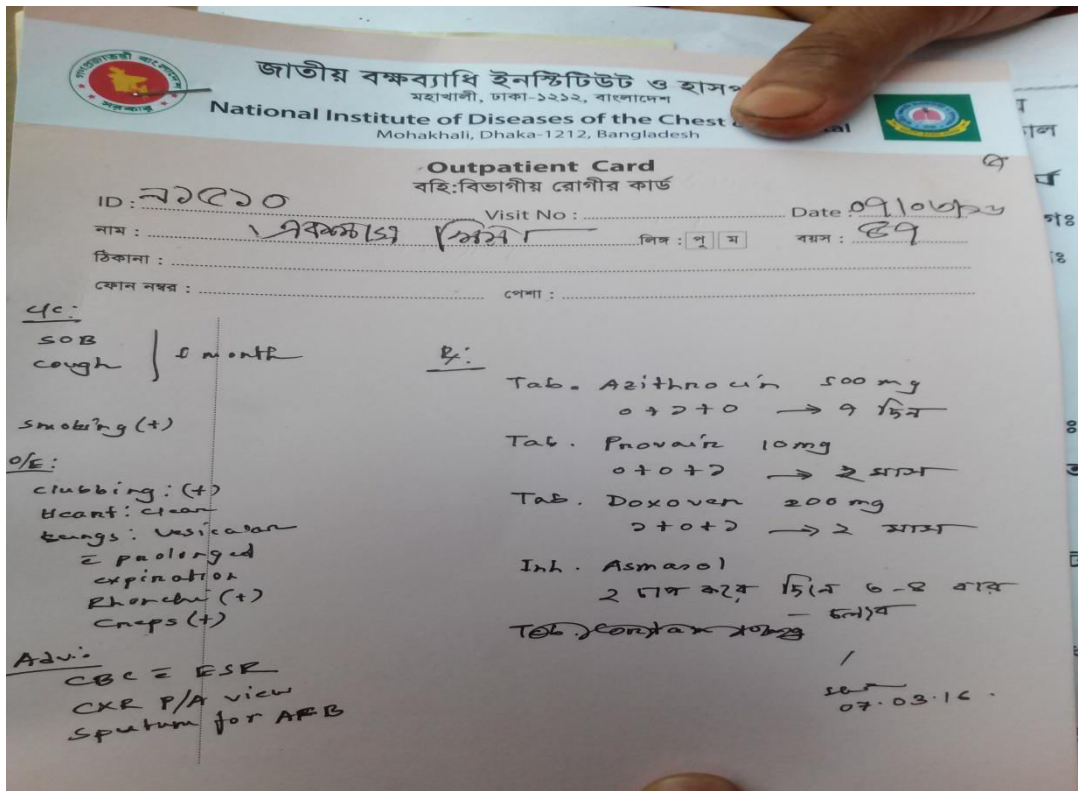 জাতীয় বক্ষব্যাধি ইনস্টিটিউট ও
মহাখালী, ঢাকা-১২১২, বাংলাদেশ
National Institute of Diseases of the Chest
Mohakhali, Dhaka-1212, Bangladesh
Outpatient Card
বহি:বিভাগীয় রোগীর কার্ড
ID : ন১৫১০ Visit No : Date : ০৭/০৩/১৬
নাম : লিঙ্গ : পু ম বয়স : ৪৭
ঠিকানা :
ফোন নম্বর : পেশা :
C/C:
SOB
cough
month
smoking (+)
O/E:
clubbing: (+)
Heart: clear
Lungs: vesicular
c̄ prolonged
expiration
Rhonchi (+)
Creps (+)
Adv:
CBC c̄ ESR
CXR P/A view
Sputum for AFB
Rx:
Tab. Azithrocin 500 mg
০+১+০ → ৭ দিন
Tab. Provair 10 mg
০+০+১ → ২ মাস
Tab. Doxoven 200 mg
১+০+১ → ২ মাস
Inh. Asmasol
২ চাপ করে দিনে ৩-৪ বার
- চলবে
07.03.16.